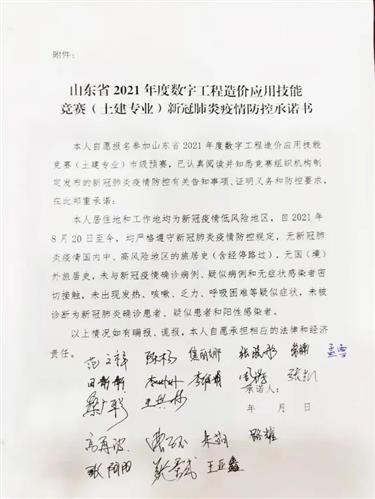 附件：
山东省 2021 年度数字工程造价应用技能
竞赛（土建专业）新冠肺炎疫情防控承诺书
本人自愿报名参加山东省 2021 年度数字工程造价应用技能
竞赛（土建专业）市级预赛，已认真阅读并知悉竞赛组织机构制
定发布的新冠肺炎疫情防控有关告知事项、证明义务和防控要求，
在此郑重承诺：
本人居住地和工作地均为新冠疫情低风险地区，自 2021 年
8 月 20 日至今，均严格遵守新冠肺炎疫情防控规定，无新冠肺
炎疫情国内中、高风险地区的旅居史（含经停路过），无国（境）
外旅居史，未与新冠疫情确诊病例、疑似病例和无症状感染者密
切接触，未出现发热、咳嗽、乏力、呼吸困难等疑似症状，未被
诊断为新冠肺炎确诊患者、疑似患者和阳性感染者。
以上情况如有瞒报、谎报，本人自愿承担相应的法律和经济
责任。
孟雪
承诺人：
年 月 日
路耀